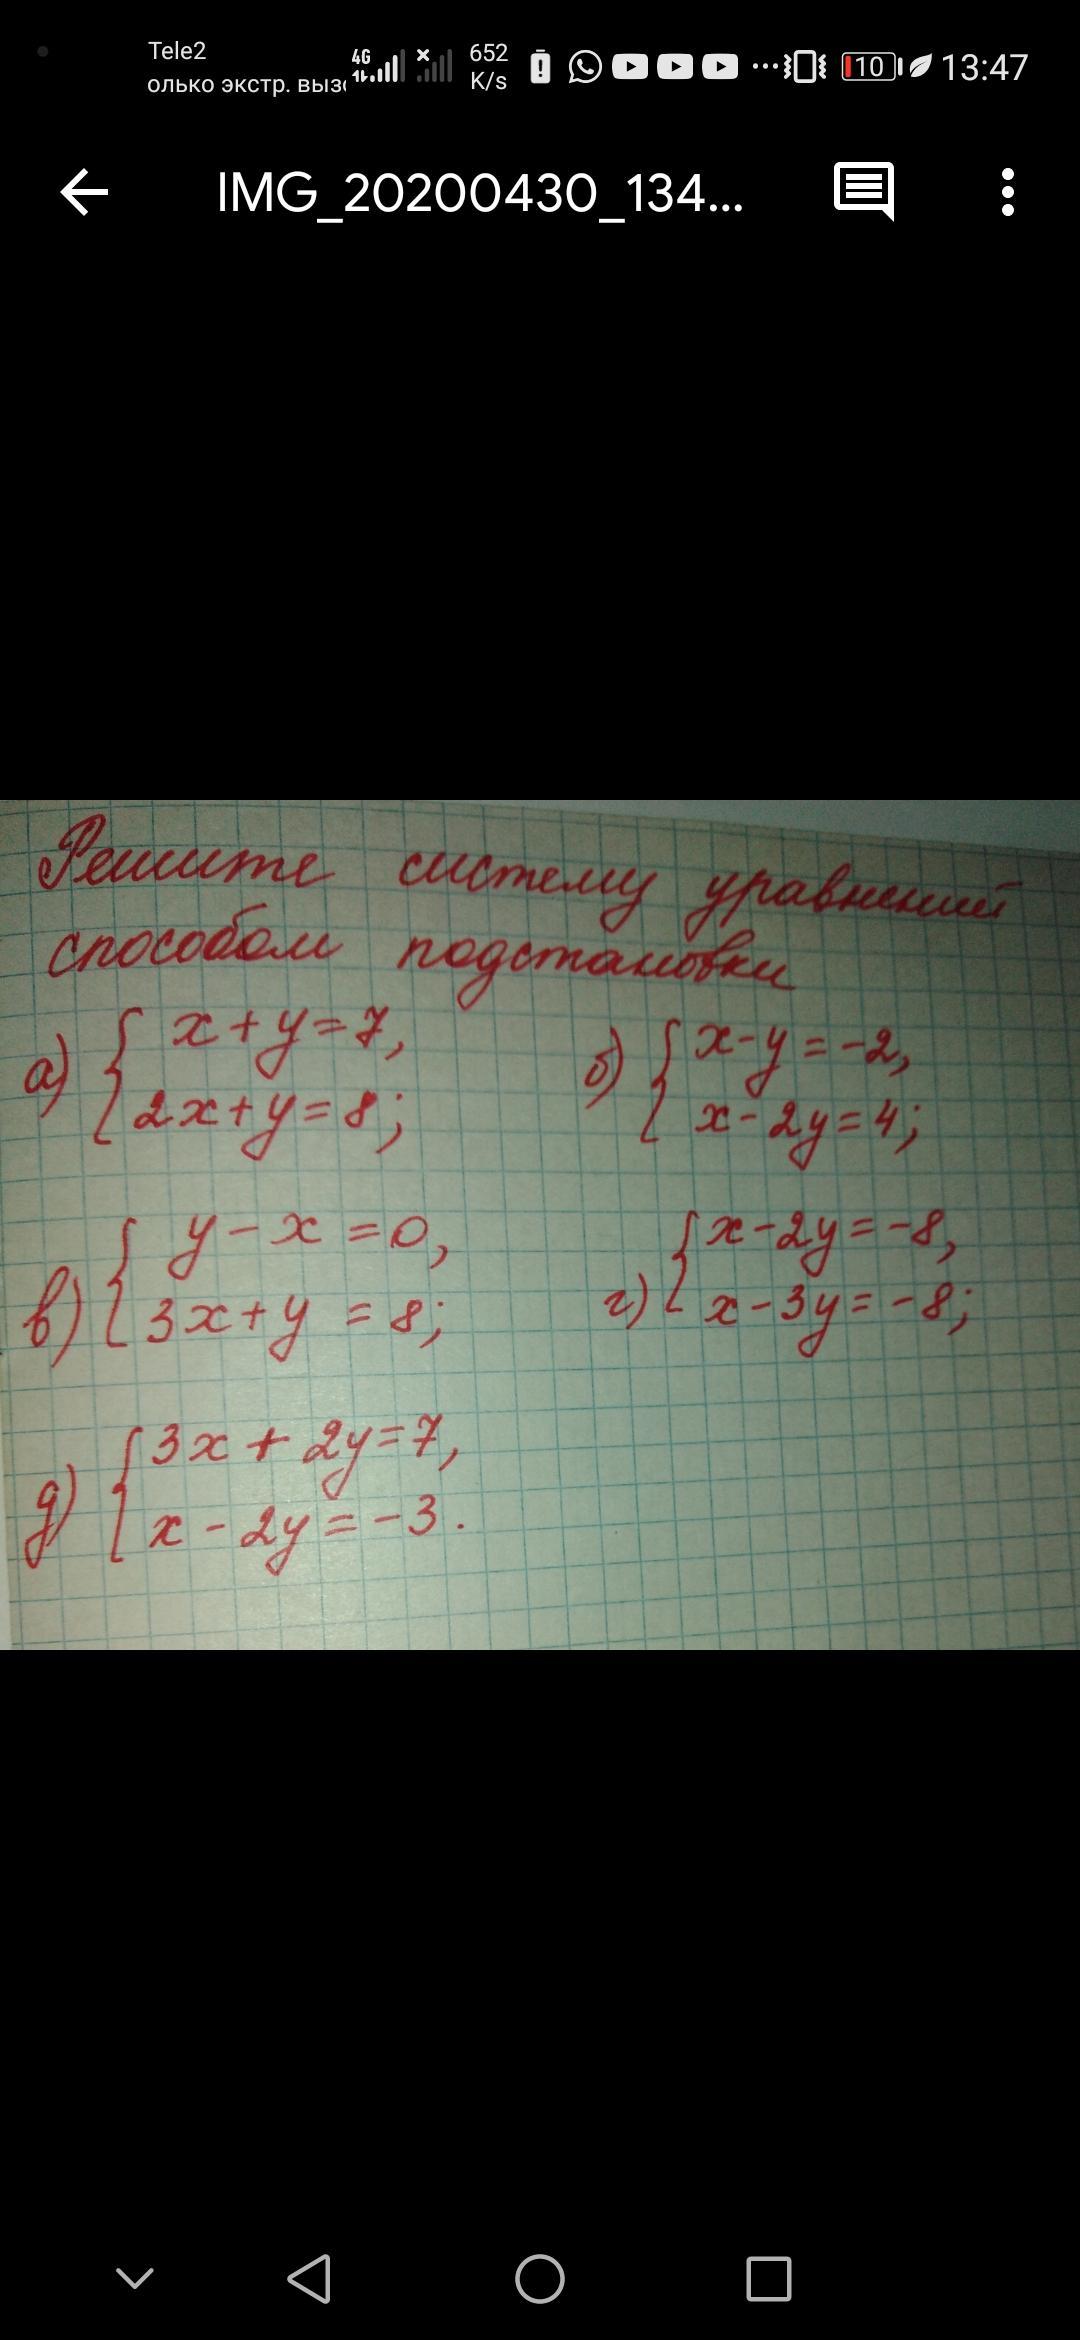 Tele2
олько экстр. выз
4G
652
K/s
10
13:47
IMG_20200430_134...
Решите систему уравнений
способом подстановки
а) { x+y=7,
2x+y=8;
б) { x-y=-2,
x-2y=4;
в) { y-x=0,
3x+y=8;
г) { x-2y=-8,
x-3y=-8;
д) { 3x+2y=7,
x-2y=-3.